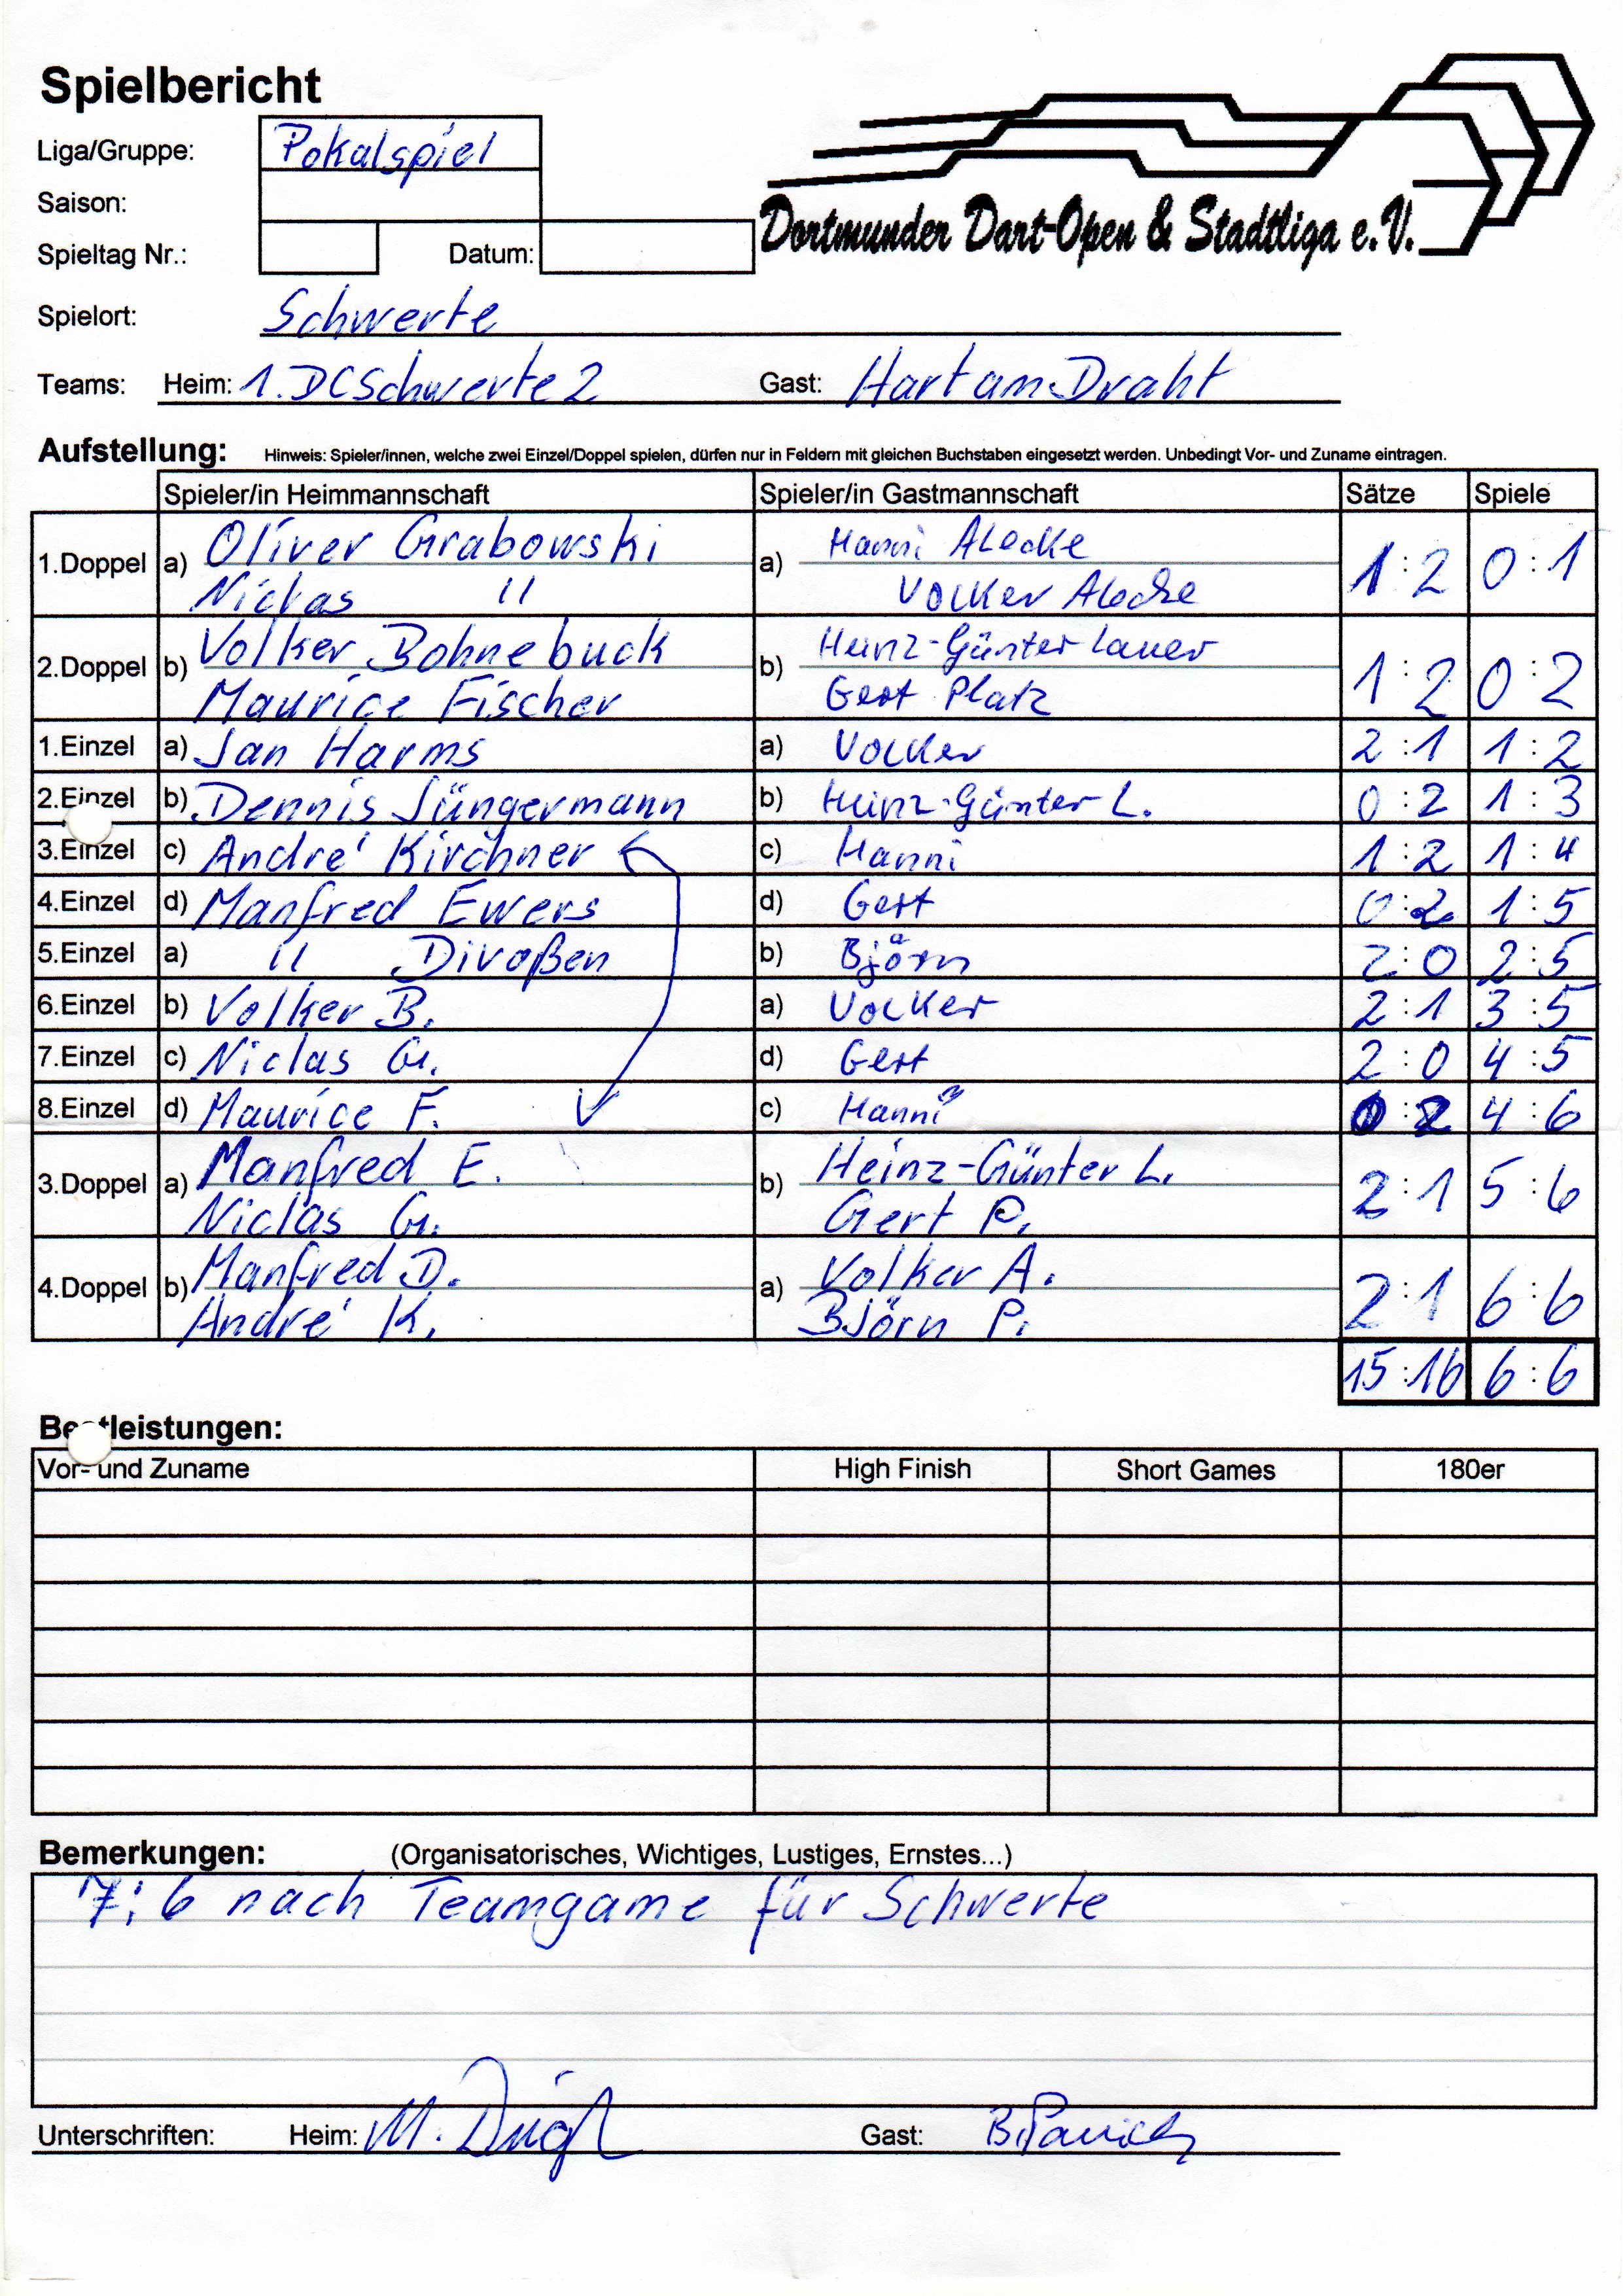 Spielbericht
Liga/Gruppe: Pokalspiel
Saison:
Spieltag Nr.: Datum:
Dortmunder Dart-Open & Stadtliga e.V.
Spielort: Schwerte
Teams: Heim: 1. DC Schwerte 2 Gast: Hart am Draht
Aufstellung: Hinweis: Spieler/innen, welche zwei Einzel/Doppel spielen, dürfen nur in Feldern mit gleichen Buchstaben eingesetzt werden. Unbedingt Vor- und Zuname eintragen.
Spieler/in Heimmannschaft Spieler/in Gastmannschaft Sätze Spiele
1.Doppel a) Oliver Grabowski a) Hanni Alecke 1:2 0:1
Niclas " Volker Alecke
2.Doppel b) Volker Bohnebuck b) Heinz-Günter Lauer 1:2 0:2
Maurice Fischer Gert Platz
1.Einzel a) Jan Harms a) Volker 2:1 1:2
2.Einzel b) Dennis Jüngermann b) Heinz-Günter L. 0:2 1:3
3.Einzel c) André Kirchner c) Hanni 1:2 1:4
4.Einzel d) Manfred Ewers d) Gert 0:2 1:5
5.Einzel a) " Divoßen b) Björn 2:0 2:5
6.Einzel b) Volker B. a) Volker 2:1 3:5
7.Einzel c) Niclas G. d) Gert 2:0 4:5
8.Einzel d) Maurice F. c) Hanni 0:2 4:6
3.Doppel a) Manfred E. b) Heinz-Günter L. 2:1 5:6
Niclas G. Gert P.
4.Doppel b) Manfred D. a) Volker A. 2:1 6:6
André K. Björn P.
15:16 6:6
Bestleistungen:
Vor- und Zuname High Finish Short Games 180er
Bemerkungen: (Organisatorisches, Wichtiges, Lustiges, Ernstes...)
7:6 nach Teamgame für Schwerte
Unterschriften: Heim: M. Gast: B.